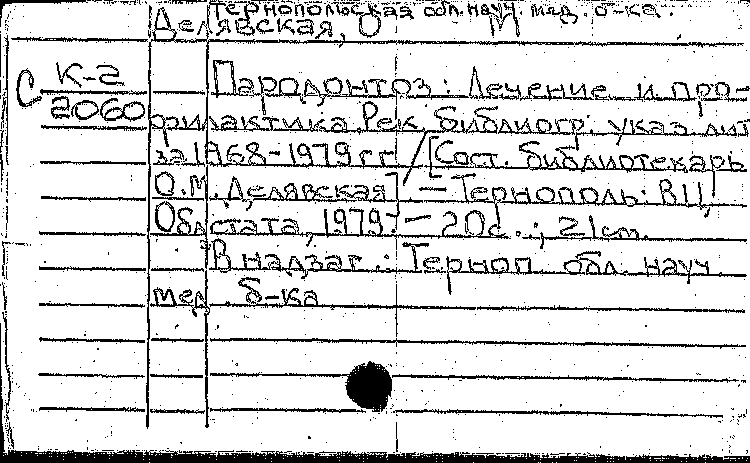 Тернопольская обл. науч. мед. б-ка.
Делявская, О М
К-2
Пародонтоз: Лечение и про-
С
2060
филактика. Рек. библиогр. указ. лит
за 1968-1979 гг / [Сост. библиотекарь
О.М. Делявская]. — Тернополь: ВЦ
Облстата, 1979. — 20с. ; 21см.
В надзаг.: Терноп. обл. науч.
мед. б-ка